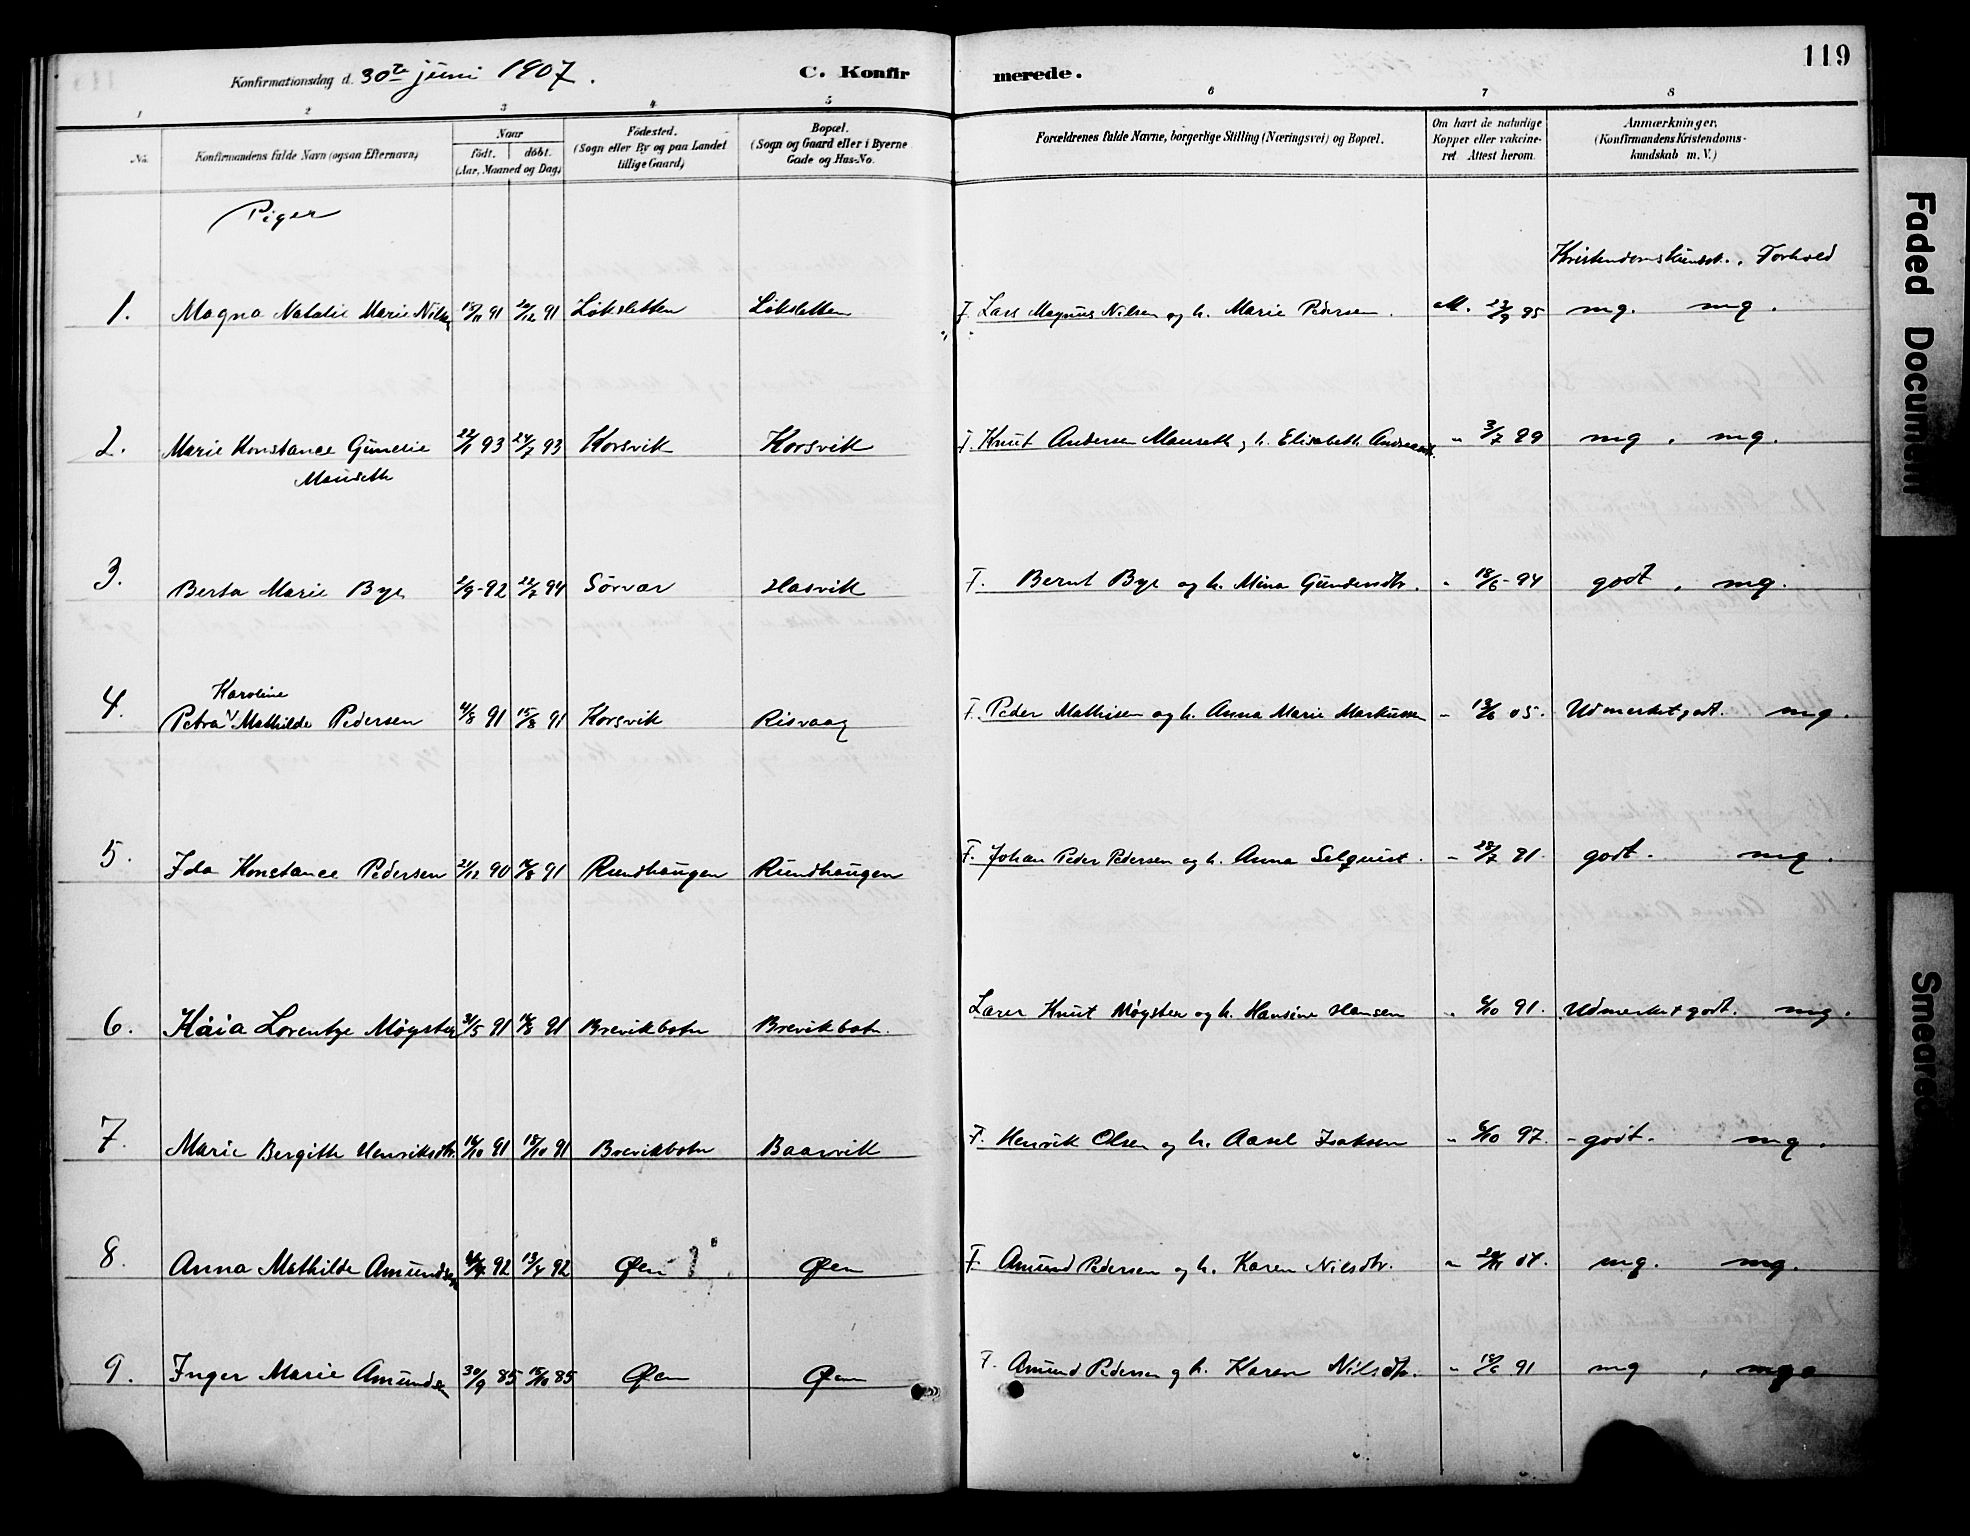 119
Konfirmationsdag d. 30te juni 1907.
C. Konfirmerede.
1 2 3 4 5 6 7 8
No.
Konfirmandens fulde Navn (ogsaa Efternavn)
Naar
födt. döbt.
(Aar, Maaned og Dag)
Födested.
(Sogn eller By og paa Landet
tillige Gaard)
Bopæl.
(Sogn og Gaard eller i Byerne
Gade og Hus-No.
Forældrenes fulde Navne, borgerlige Stilling (Næringsvei) og Bopæl.
Om havt de naturlige
Kopper eller vakcine-
ret. Attest herom.
Anmærkninger,
(Konfirmandens Kristendoms-
kundskab m. V.)
Piger
Kristendomskundsk. Forhold
1. Magna Natalie Marie Nilsen 91 91 Löksletten Löksletten F. Lars Magnus Nilsen og h. Marie Pedersen. M. 23/9 95 mg. mg.
2. Marie Konstance Gunelie 93 93 Korsvik Korsvik F. Knut Andersen Mauseth og h. Elisabeth " 3/7 99 mg, mg.
Mauseth
3. Berta Marie Bye 2/9-92 94 Sörvær Hasvik F. Bernt Bye og h. Mina Gundersdtr. " 18/6-94 godt, mg.
Karoline
4. Petra V Mathilde Pedersen 4/8 91 15/8 91 Korsvik Risvaag F. Peder Mathisen og h. Anna Marie Markussen " 05. Udmerket godt. mg.
5. Ida Konstance Pedersen 21/12 90 91 Rundhaugen Rundhaugen F. Johan Peder Pedersen og h. Anna Selquist. " 28/7 91. godt. mg.
6. Kaia Lorentze Møgster 31/5 91 91 Brevikbotn Brevikbotn. Lærer Knut Møgster og h. Hansine Hansen " 6/10 91. Udmerket godt. mg.
7. Marie Bergitte Henriksdtr. 91 18/10 91 Brevikbotn Baarvik F. Henrik Olsen og h. Aasel Isaksen " 6/10 97. - godt. mg.
8. Anna Mathilde Amundsen 92 13/4 92 Øen Øen F. Amund Pedersen og h. Karen Nilsdtr. " mg. mg.
9. Inger Marie Amundsen 30/9 85 15/10 85 Øen Øen F. Amund Pedersen og h. Karen Nilsdtr. " 91 mg, mg.
Faded Document
Smeared